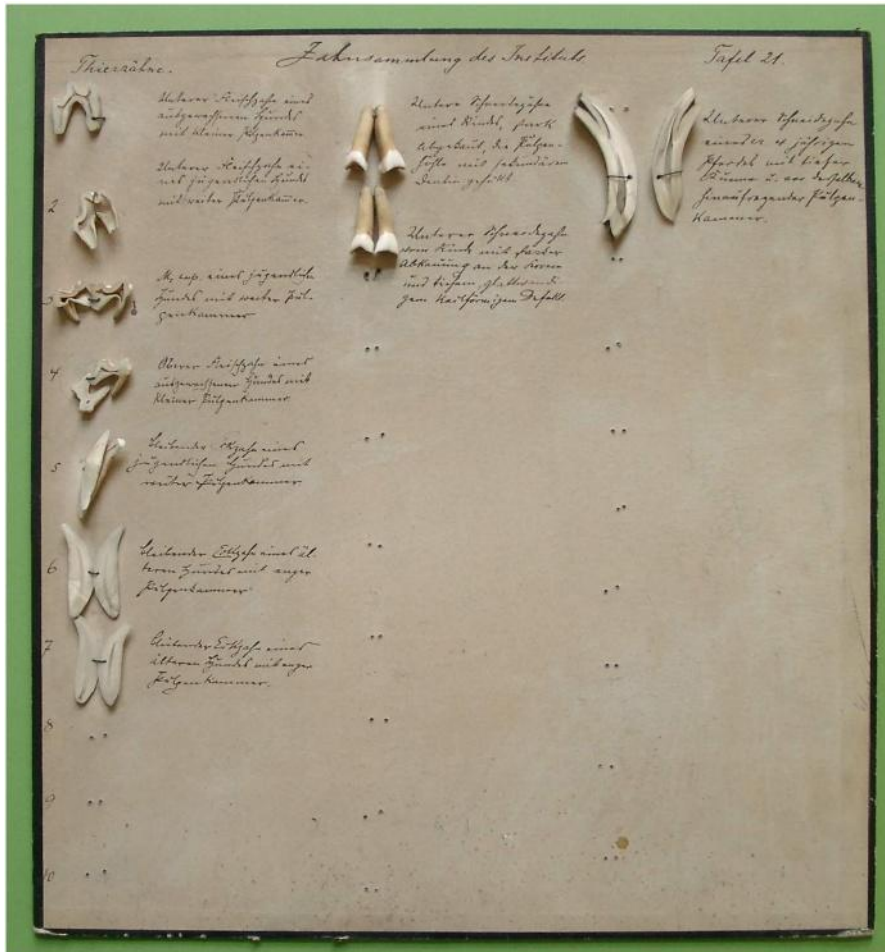 Thierzähne.
Zahnsammlung des Instituts
Tafel 21.
Unterer Fleischzahn eines
ausgewachsenen Hundes
mit kleiner Pulpenkammer
Unterer Fleischzahn ei-
nes jugendlichen Hundes
mit weiter Pulpenkammer.
2
M, sup. eines jugendlichen
Hundes mit weiter Pul-
penkammer
3
Oberer Fleischzahn eines
ausgewachsenen Hundes mit
kleiner Pulpenkammer.
4
bleibender Eckzahn eines
jugendlichen Hundes mit
weiter Pulpenkammer
5
bleibender Eckzahn eines äl-
teren Hundes mit enger
Pulpenkammer
6
bleibender Eckzahn eines
älteren Hundes mit enger
Pulpenkammer.
7
8
9
10
Untere Schneidezähne
eines Rindes, stark
abgekaut, die Pulpen-
höhle mit sekundärem
Dentin gefüllt
Unterer Schneidezahn
vom Rinde mit
Abkauung an der Krone
und tiefem, glattwandi-
gem keilförmigen Defekt.
Unterer Schneidezahn
eines 4 jährigen
Pferdes mit tiefer
Kunde u. vor derselben
hinaufragender Pulpen-
kammer.